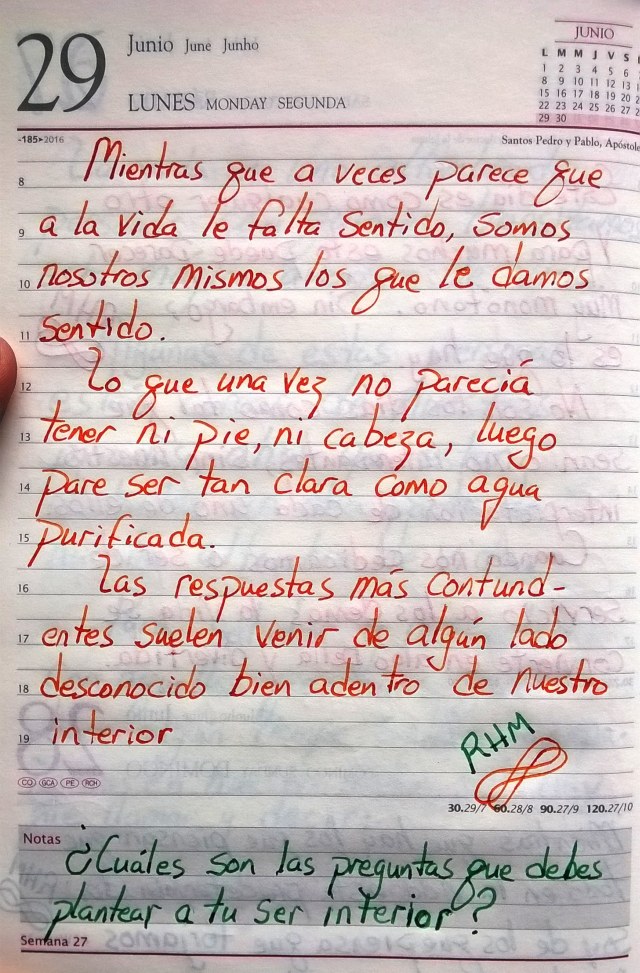 29
Junio June Junho
LUNES MONDAY SEGUNDA
JUNIO
L M M J V S
1 2 3 4 5 6
8 9 10 11 12 13
15 16 17 18 19 20
22 23 24 25 26 27
29 30
-185>2016
Santos Pedro y Pablo, Apóstole
8 Mientras que a veces parece que
9 a la vida le falta sentido, somos
10 nosotros mismos los que le damos
11 sentido.
12 Lo que una vez no pareciá
13 tener ni pie, ni cabeza, luego
14 pare ser tan clara como agua
15 purificada.
16 Las respuestas más contund-
17 entes suelen venir de algún lado
18 desconocido bien adentro de nuestro
19 interior
RHM
CO GCA PE RCH
30.29/7 60.28/8 90.27/9 120.27/10
Notas
¿Cuáles son las preguntas que debes
plantear a tu ser interior?
Semana 27